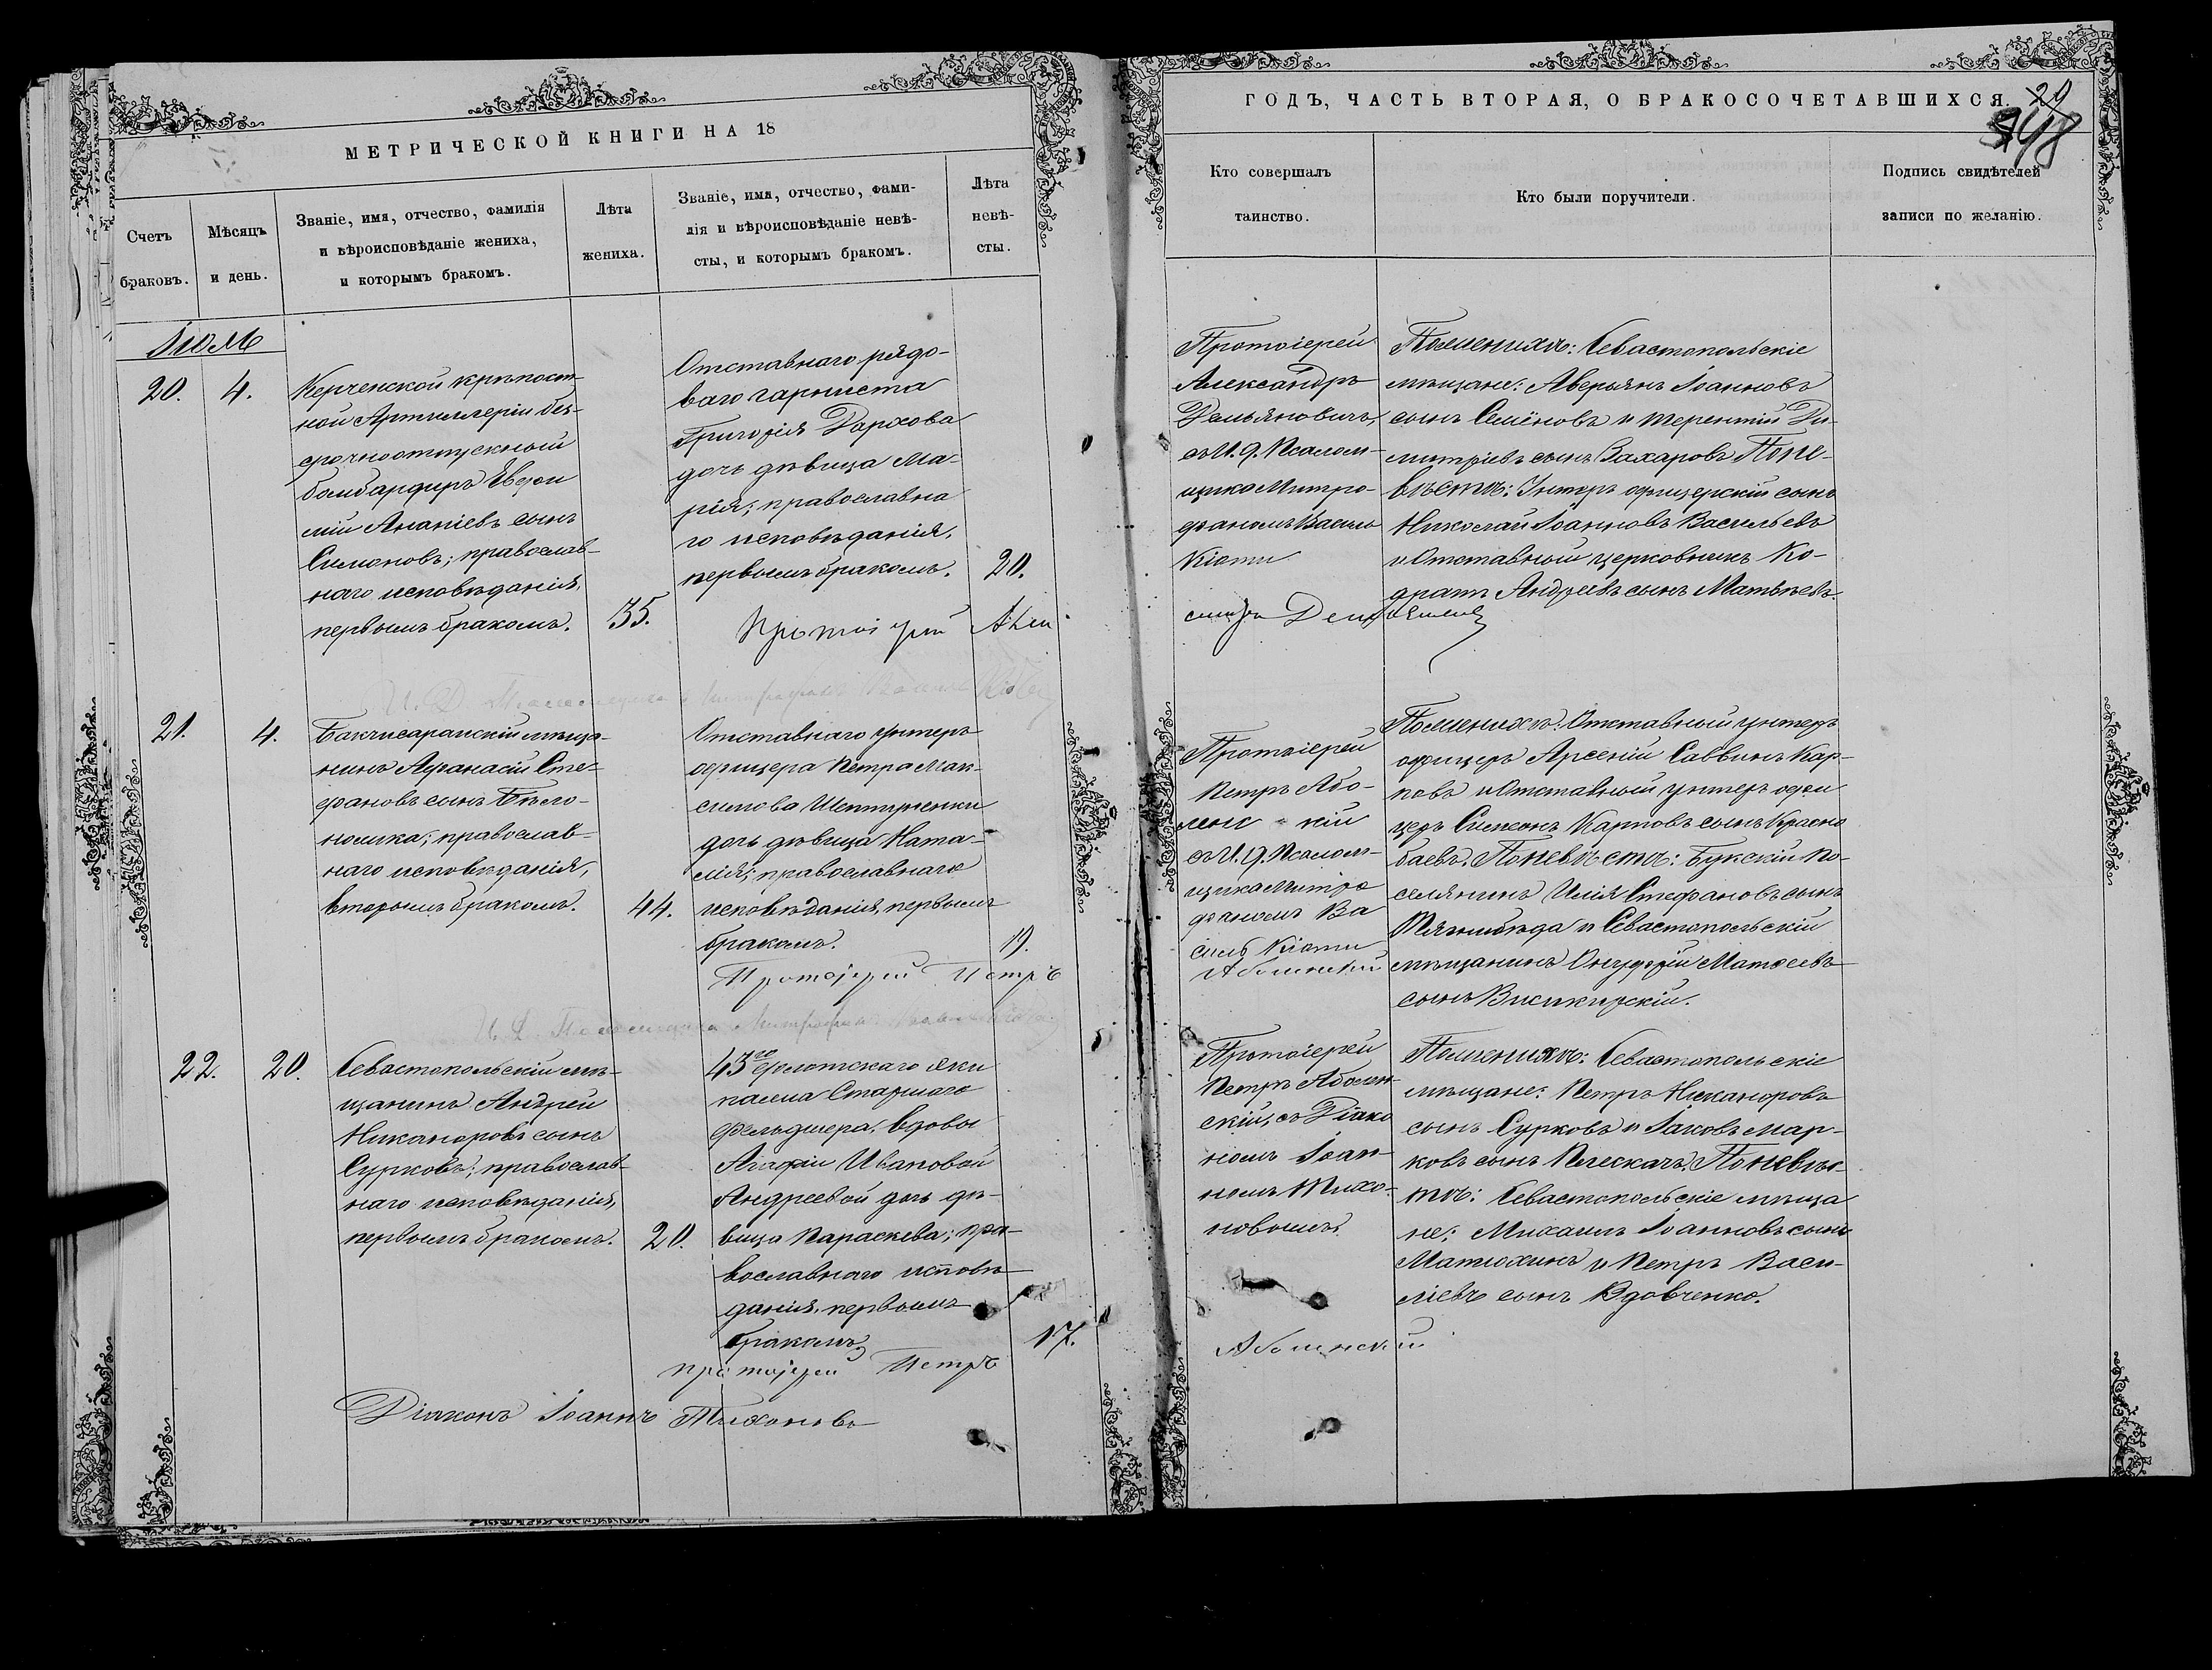 МЕТРИЧЕСКОЙ КНИГИ НА 18
Счетъ браковъ.
Мѣсяцъ и день.
Званіе, имя, отчество, фамилія
и вѣроисповѣданіе жениха,
и которымъ бракомъ.
Лѣта
жениха.
Званіе, имя, отчество, фами-
лія и вѣроисповѣданіе невѣ-
сты, и которымъ бракомъ.
Лѣта
невѣ-
сты.
ГОДЪ, ЧАСТЬ ВТОРАЯ, О БРАКОСОЧЕТАВШИХСЯ.
20
Кто совершалъ
таинство.
Кто были поручители.
Подпись свидѣтелей
записи по желанію.
20.
4.
Керченской крѣпост-
ной Артиллеріи без-
срочноотпускный
бомбардиръ Евфи
мій Ананіевъ сынъ
Симоновъ; православ-
наго исповѣданія,
первымъ бракомъ.
35.
Отставнаго рядо-
ваго горниста
Григорія Дорхова
дочь дѣвица Ма-
рія; православна
го исповѣданія,
первымъ бракомъ.
20.
Протоіерей
Александръ
Демьяновичъ,
съ И. д. Псалом-
щика Митро-
фаномъ Васило
Кіоти
По женихѣ: Севастопольскіе
мѣщане: Аверьянъ Іоанновъ
сынъ Семёновъ и Терентій Ди-
митріевъ сынъ Захаровъ. По не-
вѣстѣ: Унтеръ офицерскій сынъ
Николай Іоанновъ Васильевъ
и Отставный церковникъ Ко-
дратъ Андреевъ сынъ Матвѣевъ.
Протоіерей
21.
4.
Бакчисарайскій мѣща-
нинъ Афанасій Сте-
фановъ сынъ Бѣло-
ножка; православ-
наго исповѣданія,
вторымъ бракомъ.
44.
Отставнаго унтеръ
офицера Петра Мак-
симова Шептуненки
дочь дѣвица Ната-
лія; православнаго
исповѣданія, первымъ
бракомъ.
19.
Протоіерей
Петръ Або-
ленскій
съ И. д. Псалом-
щика Митро
фаномъ Ва
силь Кіоти
По женихѣ: Отставный унтеръ
офицеръ Арсеній Саввинъ Кар-
повъ и Отставный унтеръ офи
церъ Симеонъ Карповъ сынъ Красно
баевъ. По невѣстѣ: Букскій по-
селянинъ Илія Стефановъ сынъ
и Севастопольскій
мѣщанинъ Онуфрій Матфеевъ
сынъ
Протоіерей Петръ Аболенскій
22.
20.
Севастопольскій мѣ-
щанинъ Андрей
Никаноровъ сынъ
Сурковъ; православ-
наго исповѣданія,
первымъ бракомъ.
20.
43го флотскаго эки
пажа Старшаго
фельдшера, вдовы
Агафіи Ивановой
Андреевой дочь дѣ-
вица Параскева; пра-
вославнаго исповѣ
данія, первымъ
бракомъ.
17.
Протоіерей
Петръ Аболен-
скій, съ Діако
номъ Іоан-
номъ Тихо-
новымъ.
По женихѣ: Севастопольскіе
мѣщане: Петръ Никаноровъ
сынъ Сурковъ и Іаковъ Мар-
ковъ сынъ Плескачъ. По невѣс-
тѣ: Севастопольскіе мѣща
не: Михаилъ Іоанновъ сынъ
Матюхинъ и Петръ Васи-
ліевъ сынъ Вдовченко.
Протоіерей Петръ Аболенскій
Діаконъ Іоаннъ Тихоновъ